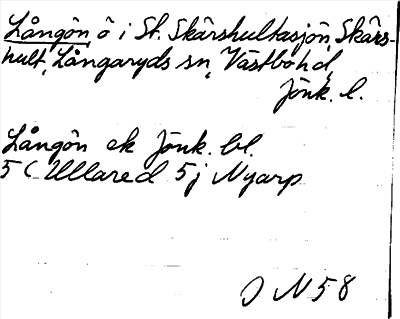 Långön ö i St. Skärshultasjön, Skärs-
hult, Långaryds sn, Västbo hd,
Jönk. l.
Långön ek Jönk. bl.
5 C Ullared 5j Nyarp
J N 58